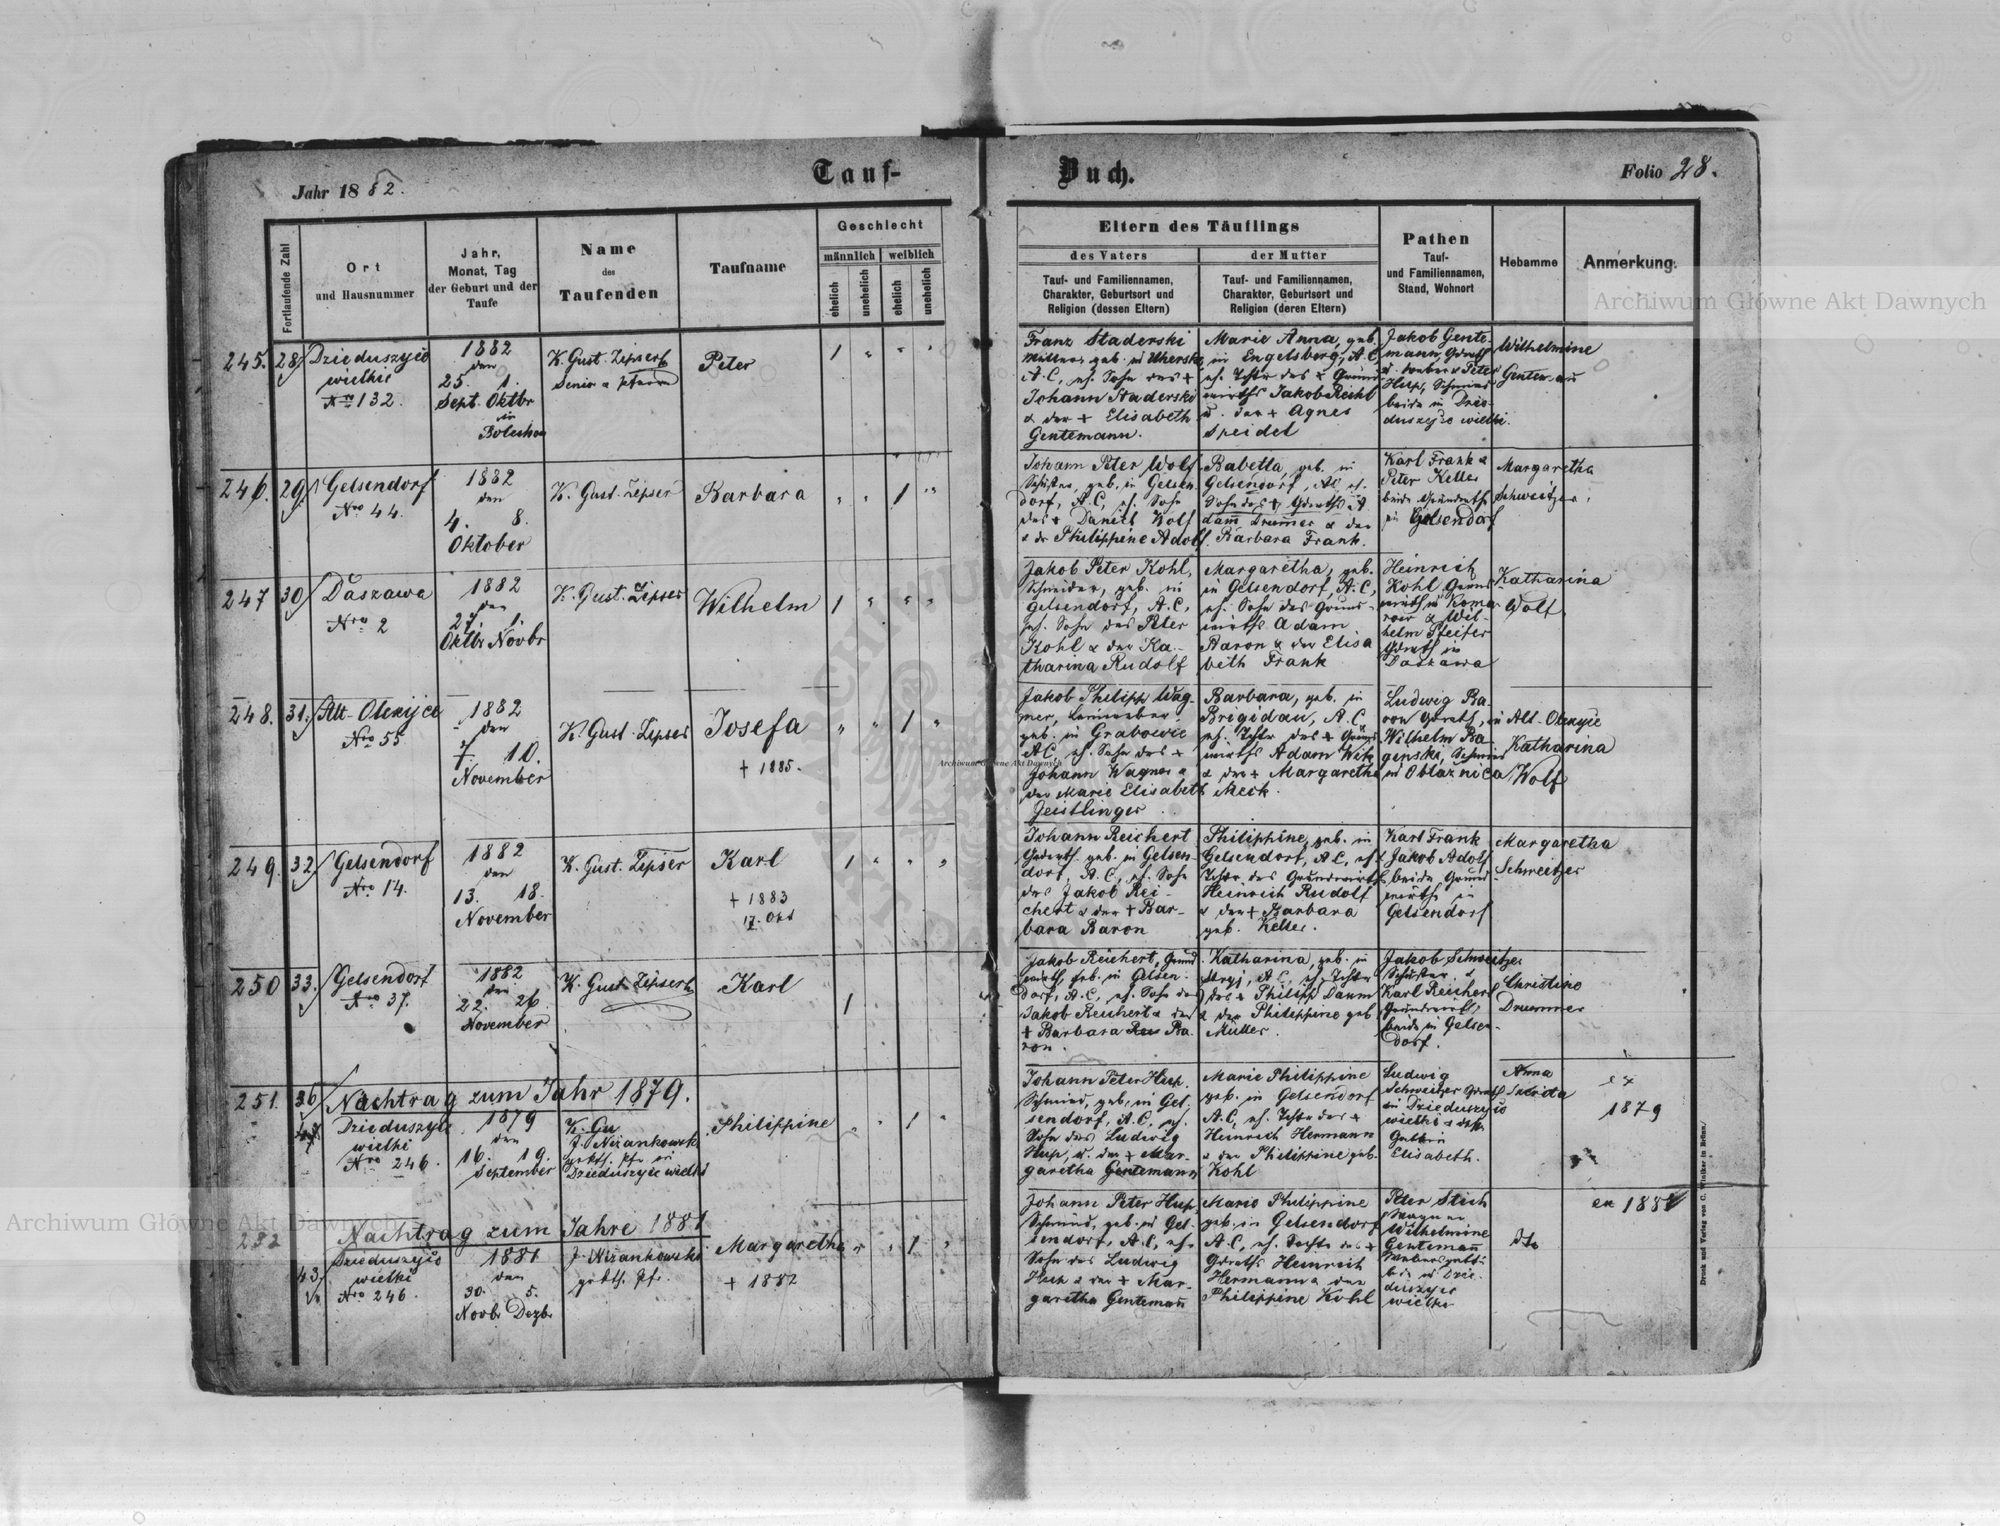 Jahr 1882.
Tauf-
Buch.
Folio 28.
Fortlaufende Zahl
Ort
und Hausnummer
Jahr,
Monat, Tag
der Geburt und der
Taufe
Name
des
Taufenden
Taufname
Geschlecht
männlich
weiblich
ehelich
unehelich
ehelich
unehelich
Eltern des Täuflings
des Vaters
der Mutter
Tauf- und Familiennamen,
Charakter, Geburtsort und
Religion (dessen Eltern)
Tauf- und Familiennamen,
Charakter, Geburtsort und
Religion (deren Eltern)
Pathen
Tauf-
und Familiennamen,
Stand, Wohnort
Hebamme
Anmerkung.
245. 28
Dzieduszyce
wielkie
Nro 132.
1882
den
25. 1.
Sept. Oktbr
in
Bolechow
K. Gust. Zipser
Senior & Pfarrer
Peter
1
Franz Staderski
A.C, eh. Sohn des +
Johann Staderski
& der + Elisabeth
Gentemann.
Marie Anna, geb.
in Engelsberg, A.C,
eh. Tchtr des + Grund-
wirths Jakob Reichl
u. der + Agnes
Speidel
Jakob Gente-
mann, Gdwrth
Hup, Schmied
beide in Dzie-
duszyce wielki.
Wilhelmine
Gentemañ
246. 29.
Gelsendorf
Nro 44.
1882
den
4. 8.
Oktober
K. Gust. Zipser
Barbara
1
Johann Peter Wolf
Schuster, geb. in Gelsen-
dorf, A.C, eh. Sohn
des + Daniel Wolf
& dr Philippine Adolf.
Babetta, geb. in
Gelsendorf, AC eh.
dam̄ Drumer & der
Barbara Frank.
Karl Frank &
Peter Keller
beide Grundwrthe
in Gelsendorf
Margaretha
Schweitzer.
247 30
Daszawa
Nro 2
1882
den
27. 1.
Oktbr Novbr
K. Gust. Zipser
Wilhelm
1
Jakob Peter Kohl,
Schneider, geb. in
Gelsendorf, A.C,
eh. Sohn des Peter
Kohl & der Ka-
tharina Rudolf
Margaretha, geb.
in Gelsendorf, A.C,
eh. Sohn des Grund-
wirths Adam
Baron & der Elisa
beth Frank
Heinrich
Kohl Grund
wirth in Koma-
row & Wil-
helm Pfeifer
Gdwrth in
Daszawa
Katharina
Wolf.
248. 31.
Alt-Olexyce
Nro 55
1882
den
7. 10.
November
K. Gust. Zipser
Josefa
+ 1885.
1
Jakob Philipp Wag-
ner, Leineweber,
geb. in Grabowce
AC eh. Sohn des +
Johann Wagner &
der Marie Elisabeth
Geistlinger
Barbara, geb. in
Brigidau, A.C,
eh. Tchtr des + Grund
wirths Adam Wik
& der + Margaretha
Meck.
Ludwig Ba-
ron Gdwrth, in Alt-Olexyce
Wilhelm Ba
genski, Schmied
in Oblaznica
Katharina
Wolf
249. 32
Gelsendorf
Nro 14.
1882
den
13. 18.
November
K. Gust. Zipser
Karl
+ 1883
17. Okt
1
Johann Reichert
Gdwrth. geb. in Gelsen-
dorf, A.C, eh. Sohn
des Jakob Rei-
chert & der + Bar-
bara Baron
Philippine, geb. in
Gelsendorf, A.C, eh.
Tchtr des Grundwirths
Heinrich Rudolf
& der + Barbara
geb. Keller.
Karl Frank
Jakob Adolf
beide Grund-
wirthe in
Gelsendorf
Margaretha
Schweitzer
250 33.
Gelsendorf
Nro 37.
1882
den
22. 26.
November
K. Gust Zipser
Karl
1
Jakob Reichert, Grund
wirth, geb. in Gelsen-
dorf, A.C, eh. Sohn des
Jakob Reichert & der
+ Barbara Ba-
ron.
Katharina, geb. in
Stryj, A.C, eh. Tchtr
des + Philipp Daum
& der Philippine geb
Müller.
Jakob Schweitzer
Schuster &
Karl Reichert
Grundwirth,
beide in Gelsen-
dorf.
Christine
Drummer
251. 36
Nachtrag zum Jahr 1879.
Dzieduszyce
wielki
Nro 246.
1879
den
16. 19.
September
K. Gu
J. Nizankowsk
gr. kth. Pfr in
Dzieduszyce wielki
Philippine
1
Johann Peter Hup,
Schmied, geb. in Gel-
sendorf, A.C, eh.
Sohn des Ludwig
Hup, u. der + Mar-
garetha Gentemann
Marie Philippine
geb. in Gelsendorf
A.C, eh. Tchtr des +
Heinrich Hermann
& der Philippine geb.
Kohl
Ludwig
Schweitzer Gdwrth
in Dzieduszyce
wielki & dess
Gattin
Elisabeth.
Anna
ex
1879
252
Nachtrag zum Jahre 1881
43.
Dzieduszyce
wielki
Nro 246.
1881
den
30. 5.
Novbr Dezbr
J. Nizankowski
gr. kth. Pfr.
Margaretha
+ 1882
1
Johann Peter Hup
Schmied, geb. in Gel-
sendorf, A.C, eh.
Sohn des Ludwig
Hup & der + Mar-
garetha Gentemañ
Marie Philippine
geb. in Gelsendorf
A.C, eh. Tochtr des +
Gdwrths Heinrich
Hermann & der
Philippine Kohl
Peter Stich
Wagner
Wilhelmine
Gentemañ
beide in Dzie-
duszyce
wielki
dto
ex 1881
Druck und Verlag von C. Winiker in Brünn.
Archiwum Główne Akt Dawnych
Archiwum Główne Akt Dawnych
Archiwum Główne Akt Dawnych